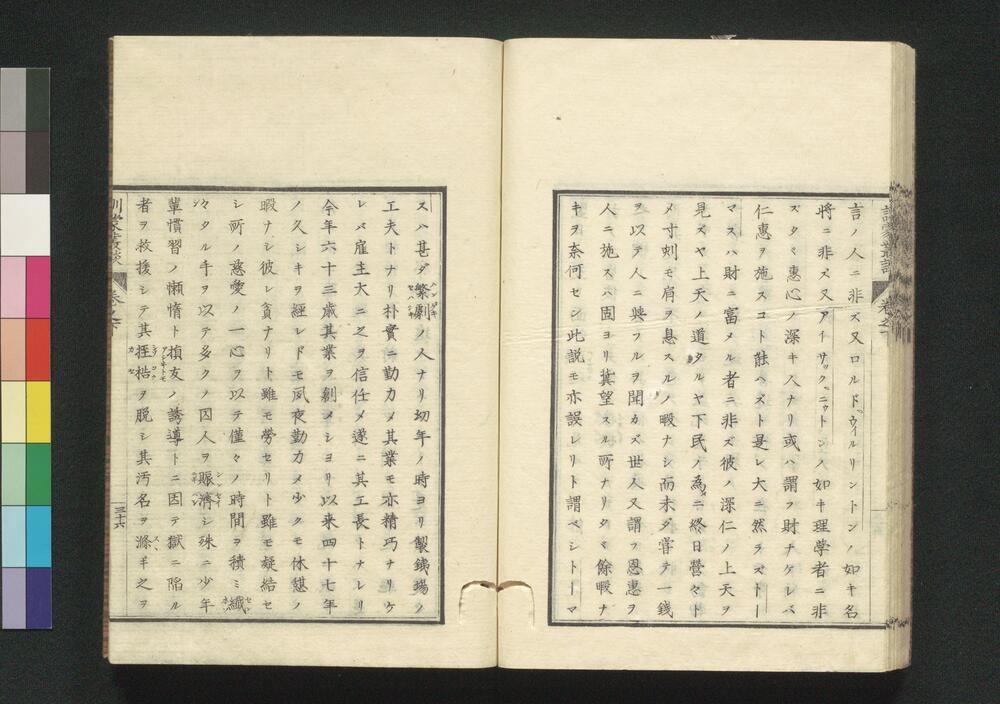 言ノ人ニ非ズ又ロルドウイルリントンノ如キ名
将ニ非ズ又アイサックニウトンノ如キ理學者ニ非
ズタヾ惠心ノ深キ人ナリ或ハ謂フ財ナケレバ
仁惠ヲ施スコト能ハズト是レ大ニ然ラズトー
マスハ財ニ富メル者ニ非ズ彼ノ深仁ノ上天ヲ
見ズヤ上天ノ道タルヤ下民ノ為ニ終日營々ト
メ寸刻モ肩ヲ息スルノ暇ナシ而未ダ嘗テ一錢
ヲ以テ人ニ與フルヲ聞カズ世人又謂フ恩惠ヲ
人ニ施スハ固ヨリ冀望スル所ナリタヾ餘暇ナ
キヲ奈何セン此説モ亦誤レリト謂ベシトーマ
スハ甚ダ繁劇ノ人ナリ切年ノ時ヨリ製鐵場ノ
工夫トナリ朴實ニ勤力メ其業モ亦精巧ナリケ
レバ雇主大ニ之ヲ信任メ遂ニ其工長トナレリ
今年六十三歳其業ヲ創メシヨリ以来四十七年
ノ久シキヲ經レドモ夙夜勤力メ少クモ休憩ノ
暇ナシ彼レ貪ナリト雖モ勞セリト雖モ凝結セ
シ所ノ慈愛ノ一心ヲ以テ僅々ノ時間ヲ積ミ纖
々タル手ヲ以テ多クノ囚人ヲ賑濟シ殊ニ少年
輩慣習ノ懶惰ト損友ノ誘導トニ因テ獄ニ陥ル
者ヲ救援シテ其桎梏ヲ脱シ其汚名ヲ滌キ之ヲ
三十六